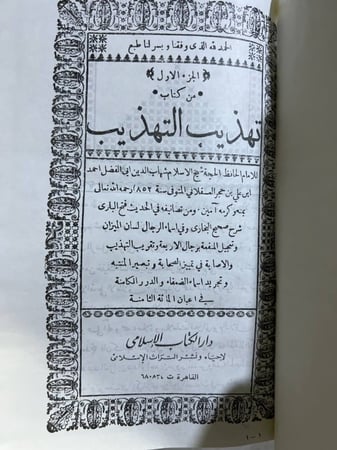 الحمد لله الذي وفقنا ويسر لنا طبع
الجزء الاول
من كتاب
تهذيب التهذيب
للامام الحافظ الحجة شيخ الاسلام شهاب الدين ابي الفضل احمد
ابن علي بن حجر العسقلاني المتوفى سنة ٨٥٢ رحمه الله تعالى
بمنه وكرمه آمين ومن تصانيفه في الحديث فتح البارى
شرح صحيح البخارى وفي اسماء الرجال لسان الميزان
وتعجيل المنفعة برجال الاربعة وتقريب التهذيب
والاصابة في تمييز الصحابة و تبصير المنتبه
وتجريد اسماء الضعفاء والدرر الكامنة
في اعيان المائة الثامنة
دار الكتاب الإسلامى
لاحياء ونشر التراث الإسلامى
القاهرة ت ٦٨٠٨٢٤
١-١